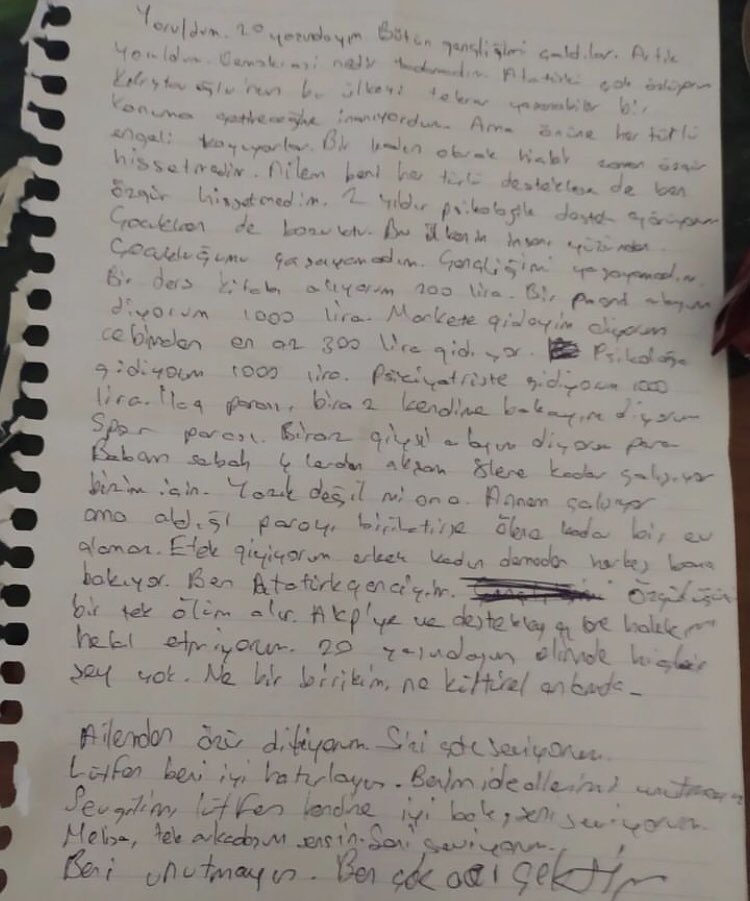 Yoruldum. 20 yaşındayım. Bütün gençliğimi çaldılar. Artık
yoruldum. Demokrasi nedir tadamadım. Atatürk'ü çok özlüyorum
Kılıçdaroğlu'nun bu ülkeyi tekrar yaşanabilir bir
konuma getireceğine inanıyordum. Ama önüne her türlü
engeli koyuyorlar. Bir kadın olarak hiçbir zaman özgür
hissetmedim. Ailem beni her türlü desteklese de ben
özgür hissetmedim. 2 yıldır psikolojik destek görüyorum
Çocukken de bozuktu. Bu ülkenin insanı yüzünden
Çocukluğumu yaşayamadım. Gençliğimi yaşayamadım.
Bir ders kitabı alıyorum 200 lira. Bir alayım
diyorum 1000 lira. Markete gideyim diyorum
cebimden en az 300 lira gidiyor. Psikoloğa
gidiyorum 1000 lira. Psikiyatriste gidiyorum 1000
lira. İlaç parası, biraz kendime bakayım diyorum
Spor parası. Biraz giysi alayım diyorum para
Babam sabah lerden akşam lere kadar çalışıyor
bizim için. Yazık değil mi ona. Annem çalışıyor
ama aldığı parayı biriktirse ölene kadar bir ev
alamaz. Etek giyiyorum erkek kadın demeden herkes bana
bakıyor. Ben Atatürk genciyim. Özgürlüğümü
bir tek ölüm alır. Akp'ye ve destekleyene hakkımı
helal etmiyorum. 20 yaşındayım elimde hiçbir
şey yok. Ne bir birikim, ne kültürel
Ailemden özür diliyorum. Sizi çok seviyorum.
Lütfen beni iyi hatırlayın. Benim ideallerimi unutmayın
Sevgilim, lütfen kendine iyi bak, seni seviyorum.
Melisa, tek arkadaşım sensin. Seni seviyorum.
Beni unutmayın. Ben çok acı çektim